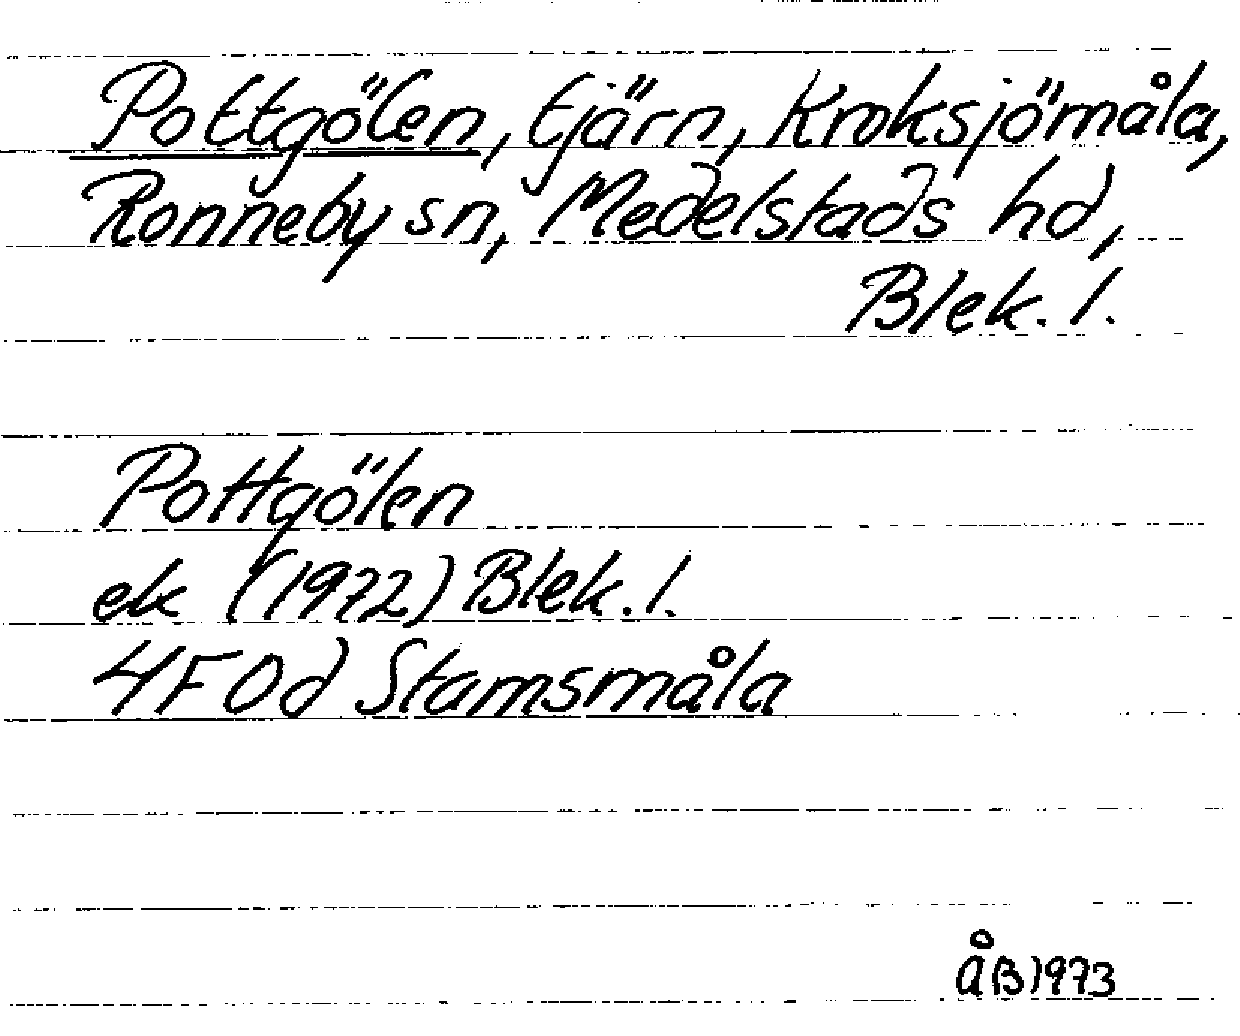 Pottgölen, tjärn, Kroksjömåla,
Ronneby sn, Medelstads hd,
Blek. l.
Pottgölen
ek (1972) Blek. l.
4F0d Stamsmåla
ÅB 1973